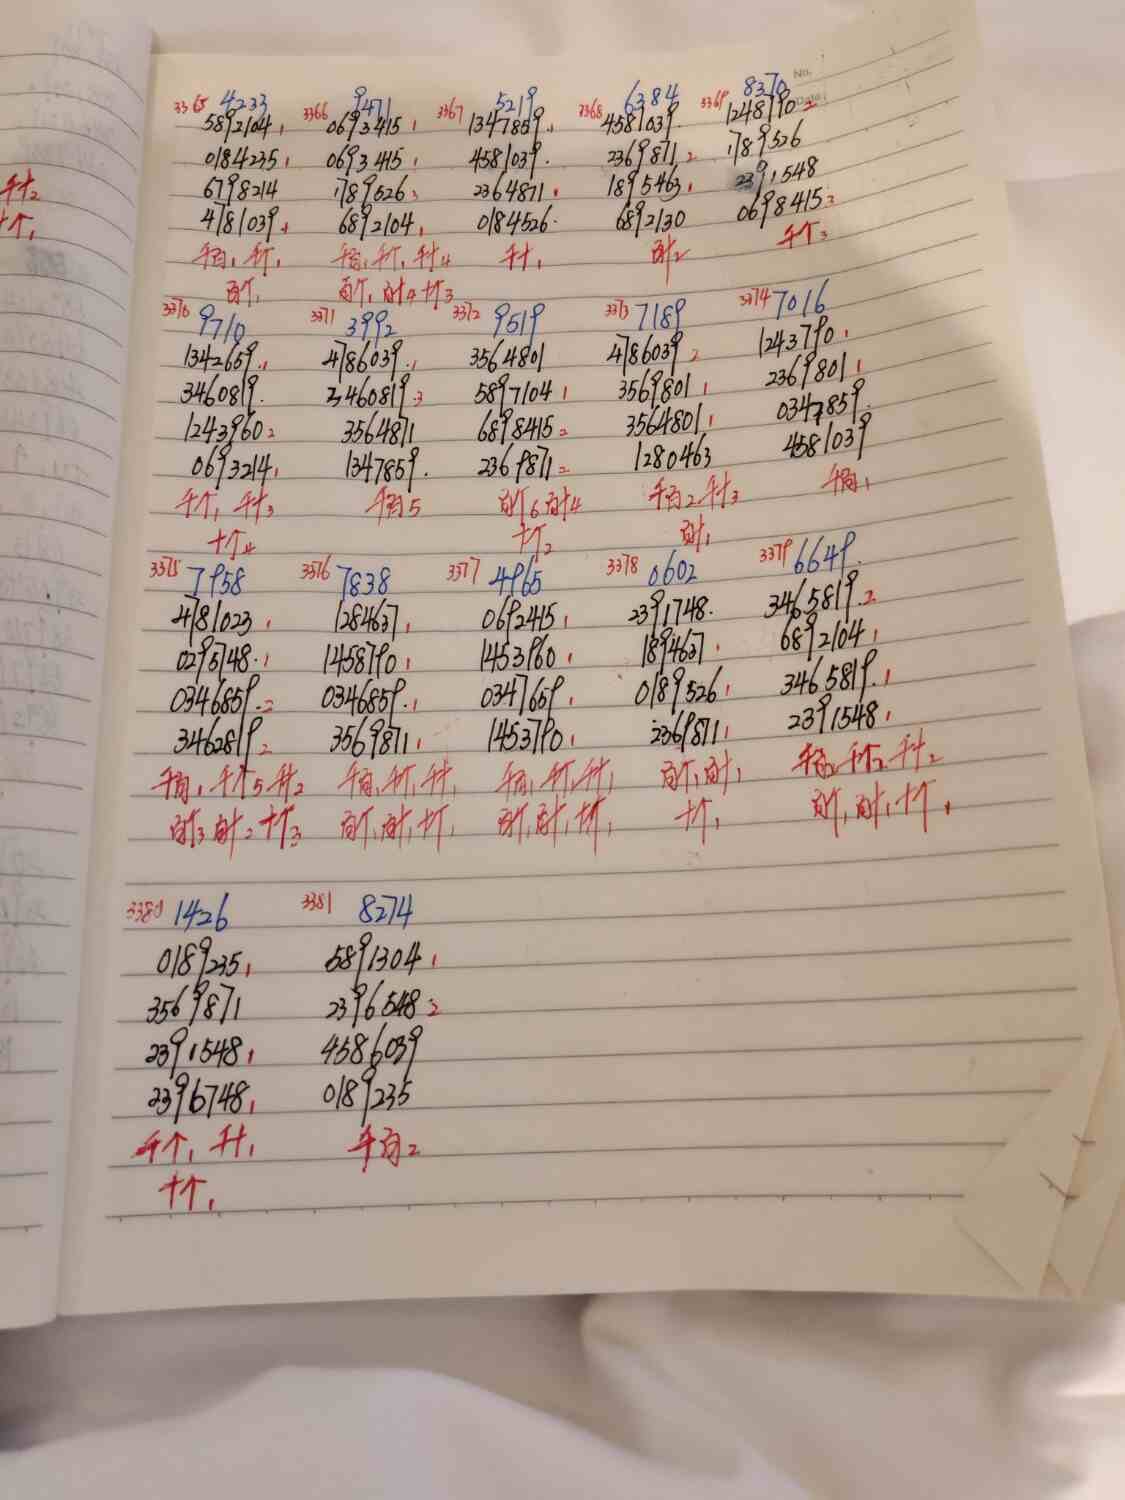 No.
3365 4233 3366 9471 3367 5219 3368 6384 3369 8370
5892104 1 0693415 1 1347859 1 4581039 1248790 2
0184235 1 0693415 1 4581039 2369871 2 1789526
6798214 1789526 2364871 1 1895463 1 2391548
4781039 1 6892104 1 0184526 6892130 0698415 2
千百1 千个1 千百1 千个1 千十4 千十1 百十2 千个3
百个1 百个1 百十4 十个3
3370 9710 3371 3992 3372 9519 3373 7189 3374 7016
1342659 1 4786039 1 3564801 4786039 2 1243790 1
3460819 3460819 3 5897104 1 3569801 1 2369801 1
1243960 2 3564871 6898415 2 3564801 1 0347859
0693214 1 1347859 2369871 2 1280463 4581039
千个1 千十3 千百5 百个6 百十4 千百2 千十3 千百1
十个4 十个2 百十1
3375 7958 3376 7838 3377 4965 3378 0602 3379 6649
4781023 1 1284637 1 0692415 1 2391748 3465819 2
0295748 1 1458790 1 1453960 1 1894637 1 6892104 1
0346859 2 0346859 1 0347659 1 0189526 1 3465819 1
3462819 2 3569871 1 1453790 1 2369871 1 2391548 1
千百1 千个5 千十2 千百1 千个1 千十1 千百1 千个1 千十1 百个1 百十1 千百2 千个2 千十2
百个3 百十2 十个3 百个1 百十1 十个1 百个1 百十1 十个1 十个1 百个1 百十1 十个1
3380 1426 3381 8274
0189235 1 5891304 1
3569871 2396548 2
2391548 1 4586039
2396748 1 0189235
千个1 千十1 千百2
十个1